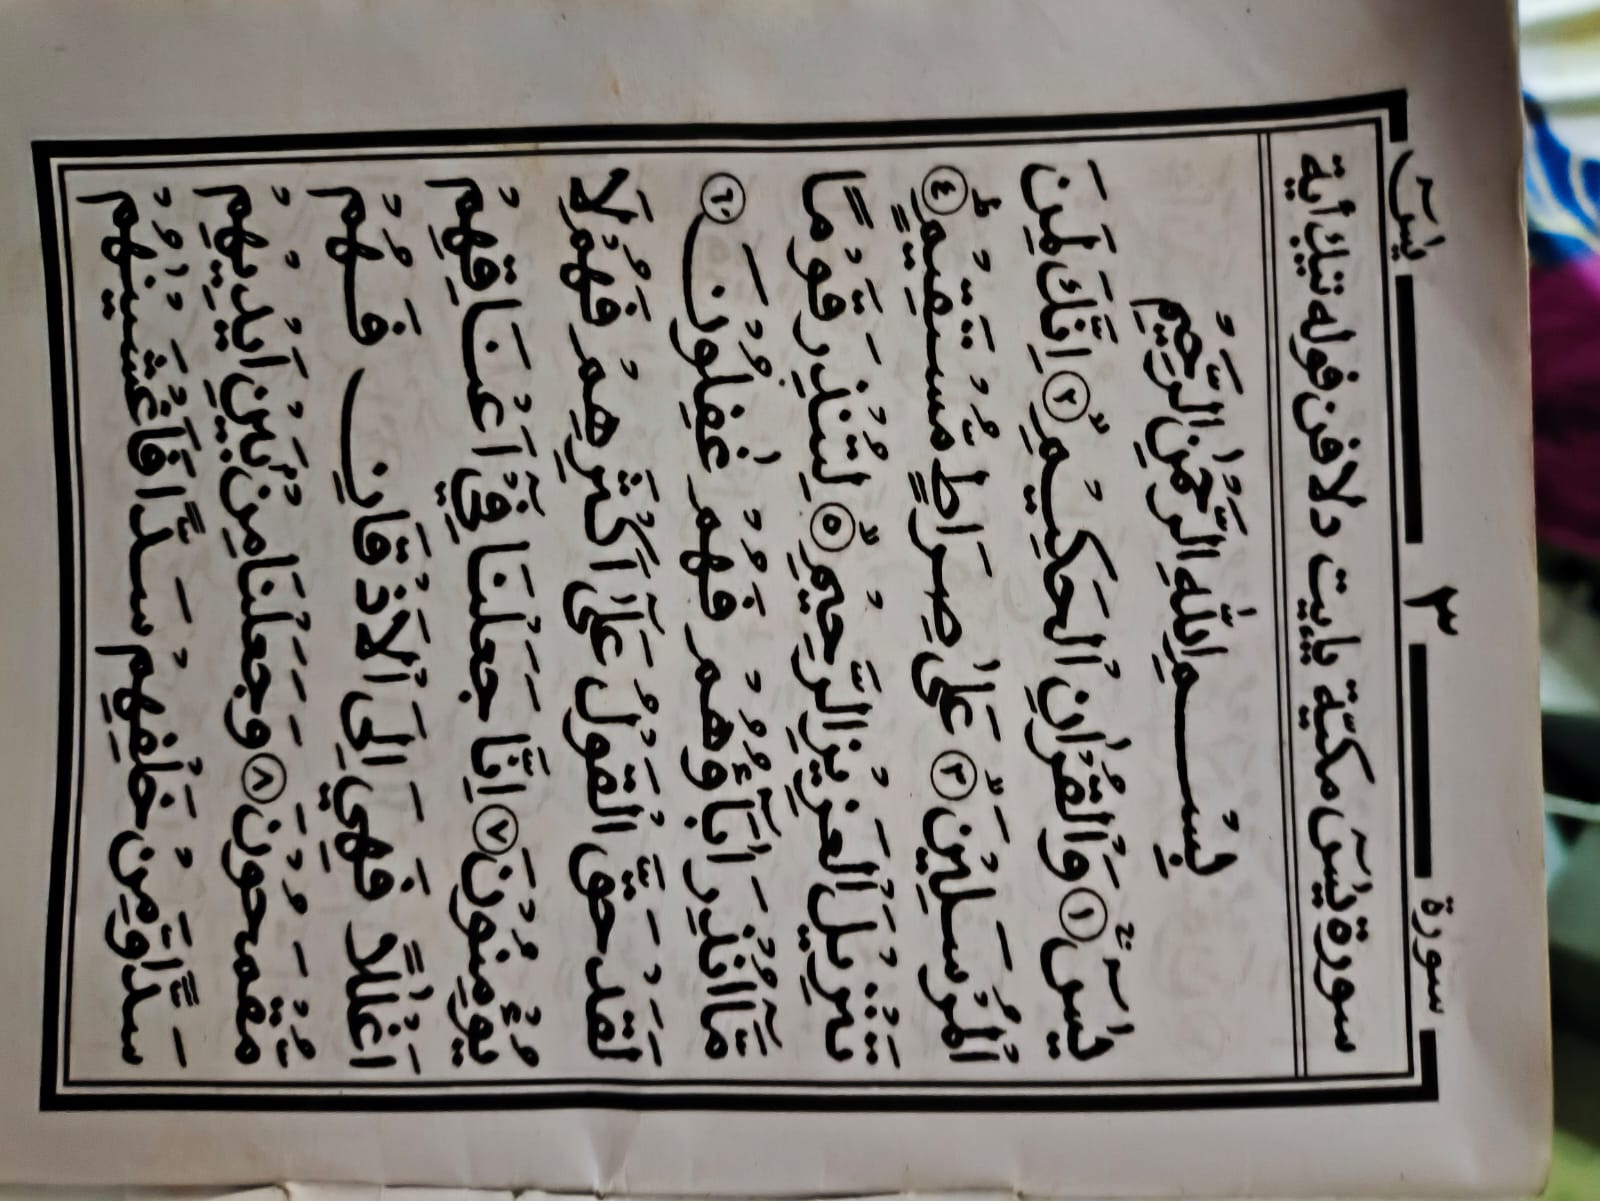 سورة ٣ يٰسٓ
سورة يٰسٓ مكيّة يايت دلافن فوله تيݢ أية
بِسْــــمِ اللّٰهِ الرَّحْمٰنِ الرَّحِيْمِ
يٰسٓ ۚ ١ وَالْقُرْاٰنِ الْحَكِيْمِۙ ٢ اِنَّكَ لَمِنَ
الْمُرْسَلِيْنَۙ ٣ عَلٰى صِرَاطٍ مُّسْتَقِيْمٍۗ ٤
تَنْزِيْلَ الْعَزِيْزِ الرَّحِيْمِۙ ٥ لِتُنْذِرَ قَوْمًا
مَّآ اُنْذِرَ اٰبَاۤؤُهُمْ فَهُمْ غٰفِلُوْنَ ٦
لَقَدْ حَقَّ الْقَوْلُ عَلٰٓى اَكْثَرِهِمْ فَهُمْ لَا
يُؤْمِنُوْنَ ٧ اِنَّا جَعَلْنَا فِيْٓ اَعْنَاقِهِمْ
اَغْلٰلًا فَهِيَ اِلَى الْاَذْقَانِ فَهُمْ
مُّقْمَحُوْنَ ٨ وَجَعَلْنَا مِنْۢ بَيْنِ اَيْدِيْهِمْ
سَدًّا وَّمِنْ خَلْفِهِمْ سَدًّا فَاَغْشَيْنٰهُمْ